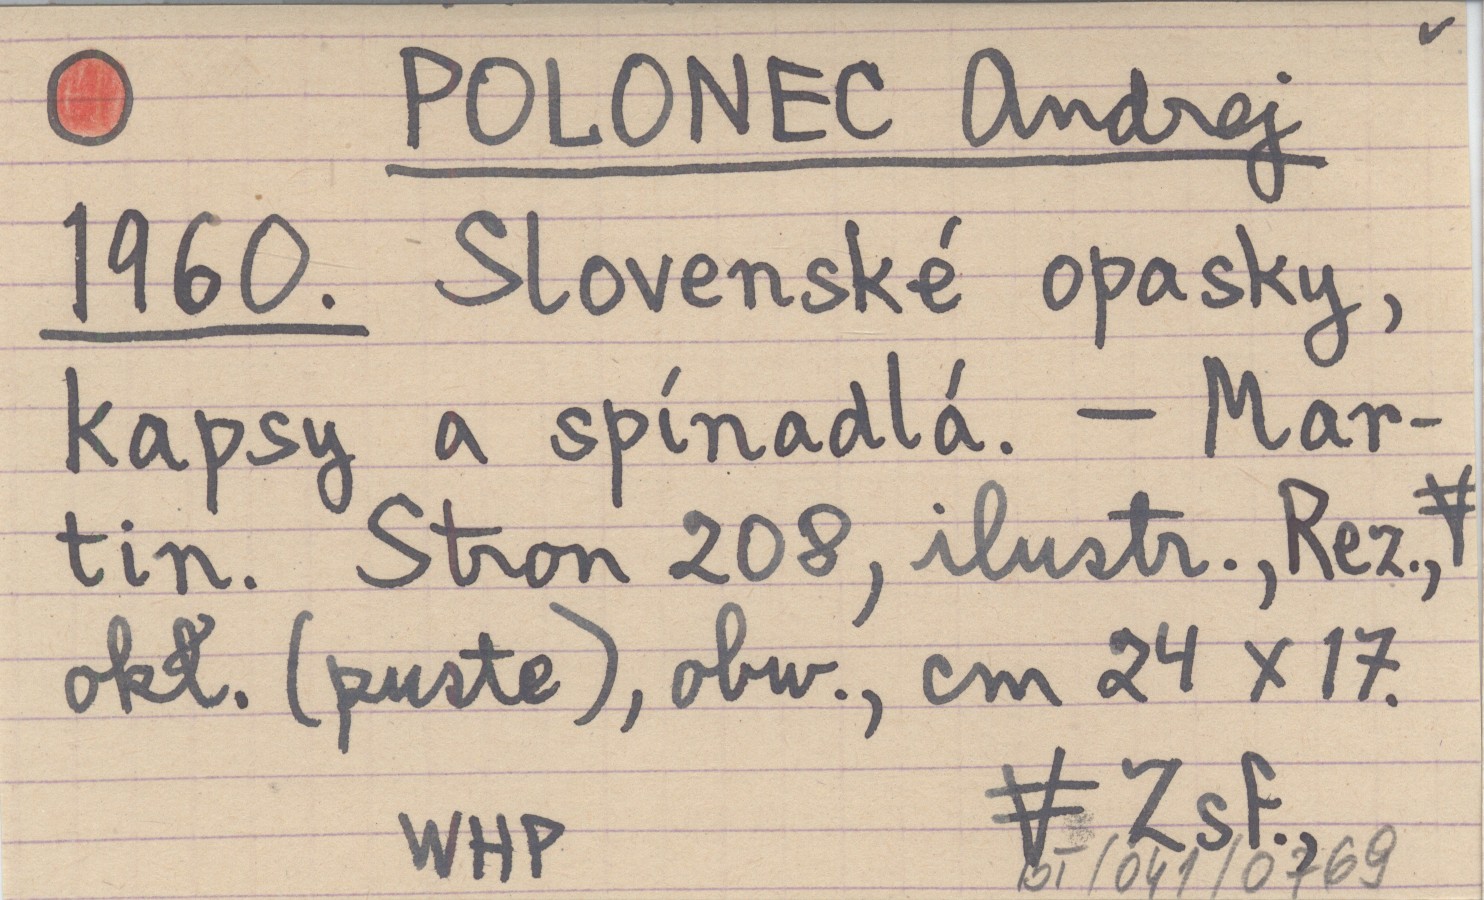 POLONEC Andrej
1960. Slovenské opasky,
kapsy a spínadlá. — Mar-
tin. Stron 208, ilustr., Rez.,
okł. (puste), obw., cm 24 x 17.
Zsf.,
WHP
/041/0769